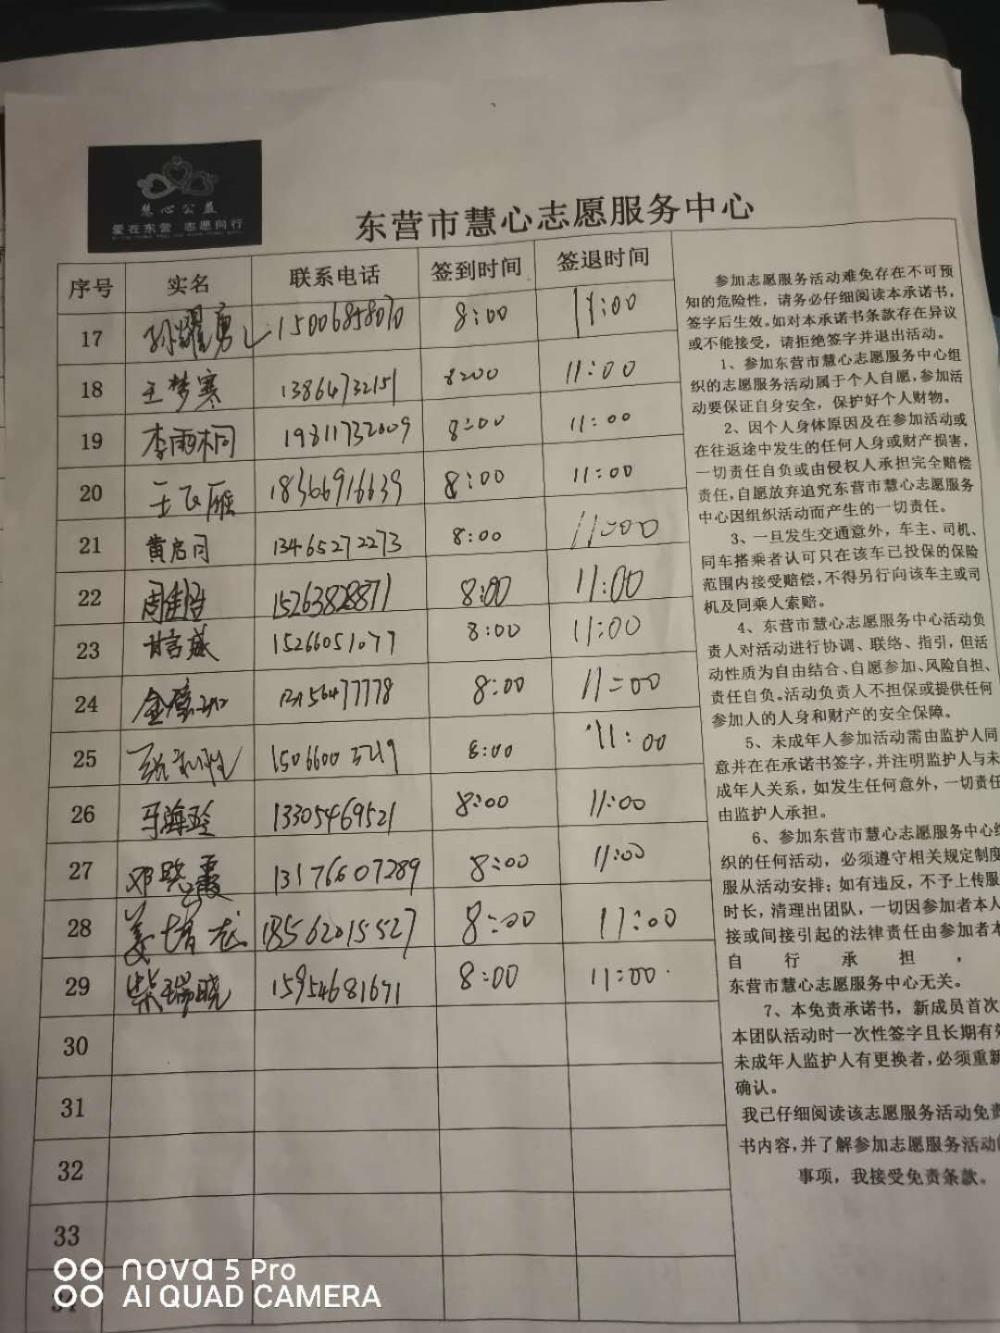 慧心公益
爱在东营 志愿同行
东营市慧心志愿服务中心
序号 实名 联系电话 签到时间 签退时间
17 孙耀勇 8:00 11:00
18 王梦寒 13864732151 8:00 11:00
19 李雨桐 19811732009 8:00 11:00
20 王飞雁 18366916639 8:00 11:00
21 黄启同 13465272273 8:00 11:00
22 15263828871 8:00 11:00
23 甘言盛 15266051077 8:00 11:00
24 8:00 11:00
25 8:00 11:00
26 马海玲 13305469521 8:00 11:00
27 邓晓霞 13176607289 8:00 11:00
28 姜增志 18562015527 8:00 11:00
29 柴瑞晓 15954681671 8:00 11:00
30
31
32
33
参加志愿服务活动难免存在不可预
知的危险性，请务必仔细阅读本承诺书，
签字后生效。如对本承诺书条款存在异议
或不能接受，请拒绝签字并退出活动。
1、参加东营市慧心志愿服务中心组
织的志愿服务活动属于个人自愿，参加活
动要保证自身安全，保护好个人财物。
2、因个人身体原因及在参加活动或
在往返途中发生的任何人身或财产损害，
一切责任自负或由侵权人承担完全赔偿
责任，自愿放弃追究东营市慧心志愿服务
中心因组织活动而产生的一切责任。
3、一旦发生交通意外，车主、司机、
同车搭乘者认可只在该车已投保的保险
范围内接受赔偿，不得另行向该车主或司
机及同乘人索赔。
4、东营市慧心志愿服务中心活动负
责人对活动进行协调、联络、指引，但活
动性质为自由结合、自愿参加、风险自担、
责任自负。活动负责人不担保或提供任何
参加人的人身和财产的安全保障。
5、未成年人参加活动需由监护人同
意并在在承诺书签字，并注明监护人与未
成年人关系，如发生任何意外，一切责任
由监护人承担。
6、参加东营市慧心志愿服务中心组
织的任何活动，必须遵守相关规定制度
服从活动安排；如有违反，不予上传服
时长，清理出团队，一切因参加者本人
接或间接引起的法律责任由参加者本
自行承担，
东营市慧心志愿服务中心无关。
7、本免责承诺书，新成员首次
本团队活动时一次性签字且长期有效
未成年人监护人有更换者，必须重新
确认。
我已仔细阅读该志愿服务活动免责
书内容，并了解参加志愿服务活动
事项，我接受免责条款。
nova 5 Pro
AI QUAD CAMERA